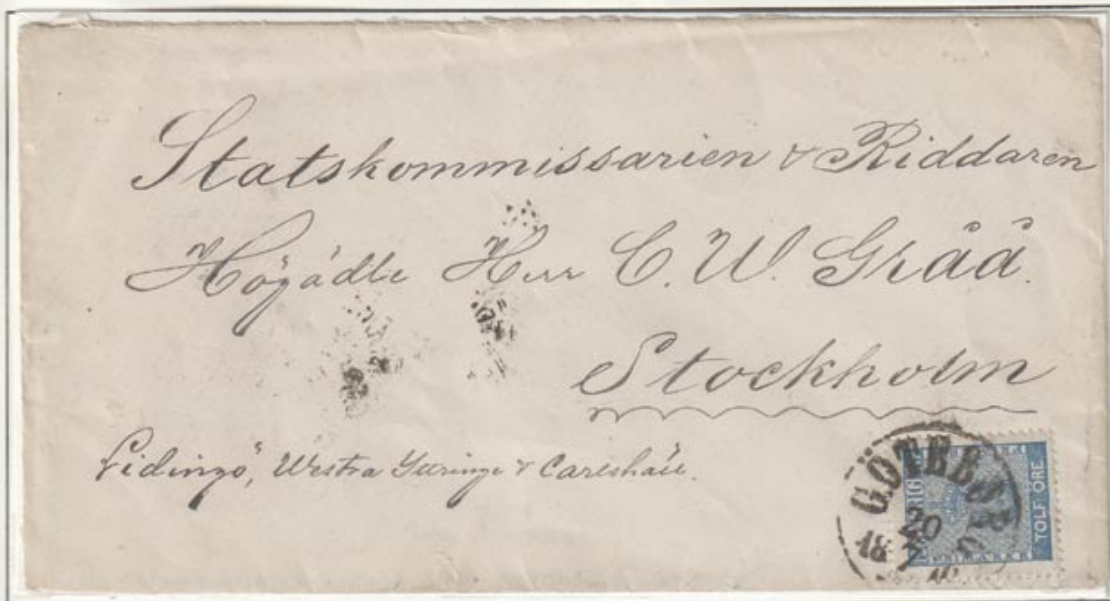 Statskommissarien & Riddaren
Högädle Herr C. W. Gråå.
Stockholm
Lidingö, Westra Yttringe & Carlshäll.
GÖTEBORG
20
18 7
TOLF ÖRE